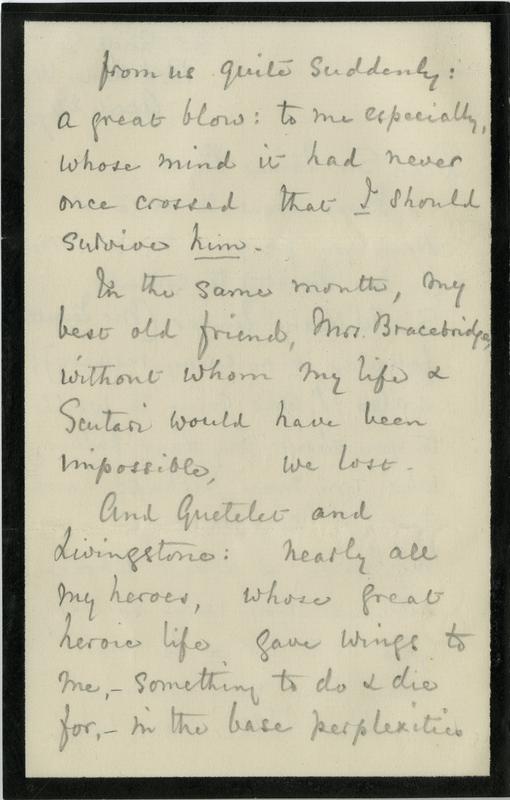 from us quite suddenly:
a great blow: to me especially,
whose mind it had never
once crossed that I should
survive him.
In the same month, my
best old friend, Mrs. Bracebridge,
without whom my life &
Scutari would have been
impossible, we lost.
And Quetelet and
Livingstone: nearly all
my heroes, whose great
heroic life gave wings to
me, - something to do & die
for, - in the base perplexities